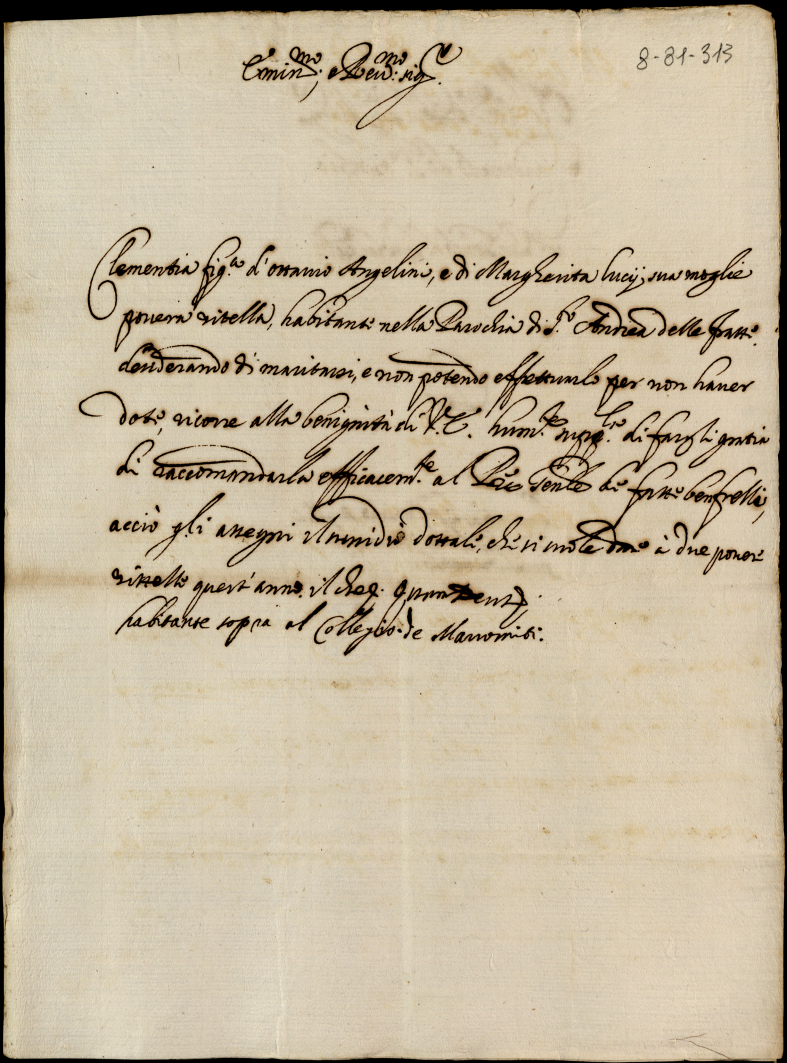 8-81-313
Emin.mo, e Reu.mo sig.r
Clementia fig.la d'ottauio Angelini, e di Margherita Lucij, sua moglie
pouera zitella, habitante nella Parochia di S.to Andrea delle fratte
desiderando di maritarsi, e non potendo effettuarlo per non hauer
dote, ricorre alla benignità di V. E. hum.te supp.le di farli gratia
di raccomandarla efficacem.te al Gen.le de fatte benfrelli,
acciò gli assegni il susidio dottale, che si suole dare à due pouere
zittelle quest'anno. il che
habitante sopra al Collegio de Marroniti.